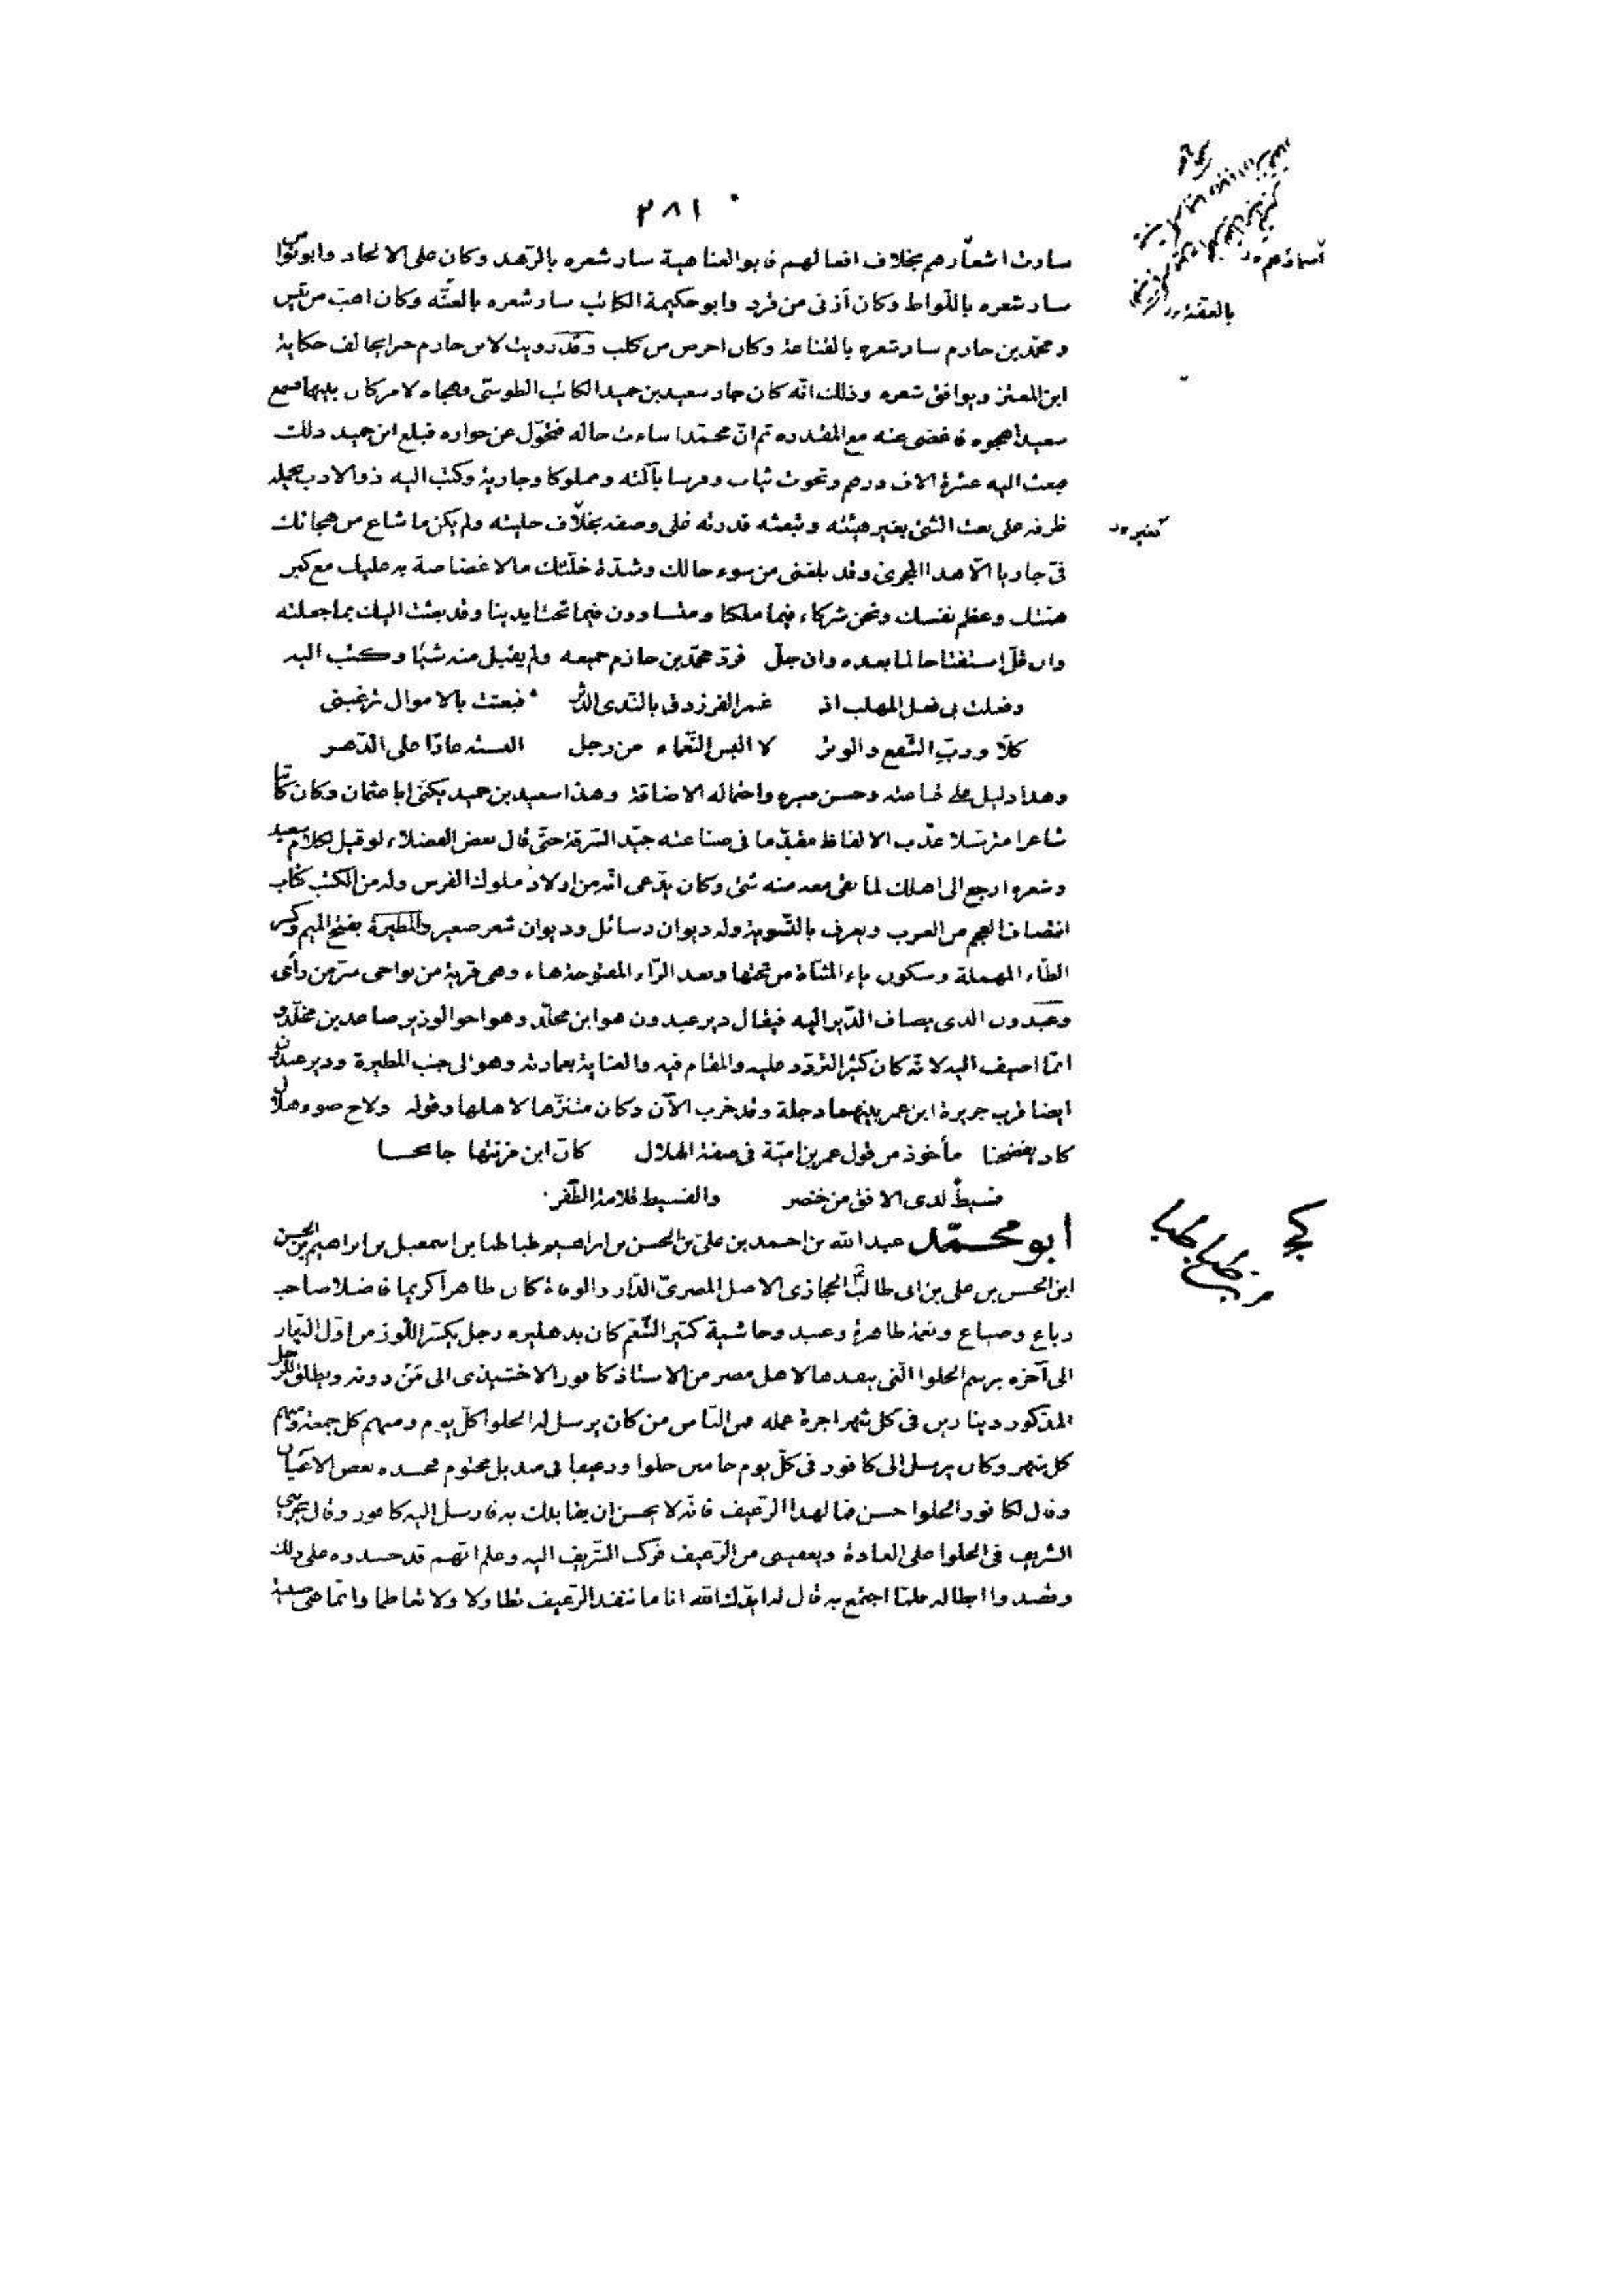 ٢٨١
سارت اشعارهم بخلاف افعالهم فابو العتاهية سار شعره بالزهد وكان على الالحاد وابو نواس
سار شعره باللواط وكان أزنى من قرد وابو حكيمة الكاتب سار شعره بالعنّة وكان اهبّ من تيس
ومحمّد بن حازم سار شعره بالقناعة وكان احرص من كلب وقد رويت لابن حازم خبرا يخالف حكاية
ابن المعتز ويوافق شعره وذلك انّه كان جار سعيد بن حميد الكاتب الطوسّى وهجاه لامر كان بينهما فسمع
سعيد هجوه فاغضى عنه مع القدره ثم انّ محمّدا ساءت حاله فتحوّل عن جواره فبلغ ابن حميد ذلك
فبعث اليه عشرة الاف درهم وتخوت ثياب وفرسا بآلته ومملوكا وجارية وكتب اليه ذو الادب يحمله
ظرفه على نعت الشئ بغير هيئته وتبعثه قدرته على وصفه بخلاف حليته ولم يكن ما شاع من هجائك
فىّ جاريا الّا هذا المجرى وقد بلغنى من سوء حالك وشدّة خلّتك مالا غضاضة به عليك مع كبر
همّتك وعظم نفسك ونحن شركاء فيما ملكنا ومتساوون فيما تحت ايدينا وقد بعثت اليك بما جعلته
وان قلّ استفتاحا لما بعده وان جلّ فردّ محمّد بن حازم جميعه ولم يقبل منه شيئا وكتب اليه
وفعلت بى فعل المهلب اذ غمر الفرزدق بالنّدى الدثر فبعثت بالاموال ترغبنى
كلّا وربّ الشّفع والوتر لا البس النّعماء من رجل البسته عارًا على الدّهر
وهذا دليل على قناعته وحسن صبره واحتماله الاضاقة وهذا سعيد بن حميد يكنى ابا عثمان وكان كاتبا
شاعرا مترسّلا عذب الالفاظ مقدّما فى صناعته جيّد السّرقة حتّى قال بعض الفضلاء لو قيل لكلام سعيد
وشعره ارجع الى اهلك لما بقى معه منه شئ وكان يدّعى انّه من اولاد ملوك الفرس وله من الكتب كتاب
انتصاف العجم من العرب ويعرف بالتّسوية وله ديوان رسائل وديوان شعر صغير والمطيرة بفتح الميم وكسر
الطّاء المهملة وسكون ياء المثنّاة من تحتها وبعد الرّاء المفتوحة هاء وهى قرية من نواحى سرّ من رأى
وعبدون الذى يضاف الدّير اليه فيقال دير عبدون هو ابن مخلّد وهو اخو الوزير صاعد بن مخلّد و
انّما اضيف اليه لانّه كان كثير التردّد عليه والمقام فيه والعناية بعمارته وهو الى جنب المطيرة ودير عبدون
ايضا قرب جزيرة ابن عمر بينهما دجلة وقد خرب الآن وكان متنزّها لاهلها وقوله ولاح ضوء هلال
كاد يفضحنا مأخوذ من قول عمر بن اميّة فى صفة الهلال كأنّ ابن مزنتها جانحا
فسيط لدى الافق من خنصر والفسيط قلامة الظّفر
أبو محمّد عبد الله بن احمد بن على بن الحسن بن ابراهيم طباطبا بن اسمعيل بن ابراهيم بن الحسن
ابن الحسن بن على بن ابى طالب الحجازى الاصل المصرىّ الدّار والوفاة كان طاهرا كريما فاضلا صاحب
رباع وضياع ونعمة ظاهرة وعبيد وحاشية كثير التّنعّم كان بدهليزه رجل يكسر اللّوز من اوّل النّهار
الى آخره برسم الحلوا الّتى ينفدها لاهل مصر من الاستاذ كافور الاخشيدى الى من دونه ويطلق للرجل
المذكور دينارين فى كل شهر اجرة عمله فمن النّاس من كان يرسل له الحلوا كلّ يوم ومنهم كل جمعة ومنهم
كل شهر وكان يرسل الى كافور فى كلّ يوم جامين حلوا ورغيفا فى منديل مختوم فحسده بعض الاعيان
وقال لكافور الحلوا حسن فما لهذا الرّغيف فانّه لا يحسن ان يقابلك به فارسل اليه كافور وقال يجرينى
الشريف فى الحلوا على العادة ويعفينى من الرّغيف فركب الشّريف اليه وعلم انّهم قد حسدوه على ذلك
وقصدوا ابطاله فلمّا اجتمع به قال له ايّدك الله انا ما ننفذ الرّغيف تطاولا ولا تعاظما وانّما هى صبيّة